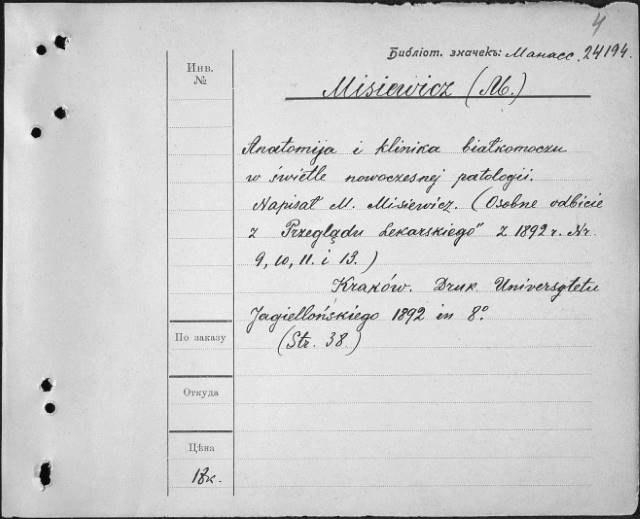 4
Библіот. значекъ: Манасс. 24194.
Инв.
№
Misiewicz (M.)
Anatomija i klinika białkomoczu
w świetle nowoczesnej patologii.
Napisał M. Misiewicz. (Osobne odbicie
z "Przeglądu Lekarskiego" z 1892 r. Nr.
9, 10, 11. i 13.)
Kraków. Druk Uniwersytetu
Jagiellońskiego 1892 in 8.°
(Str. 38.)
По заказу
Откуда
Цѣна
18к.